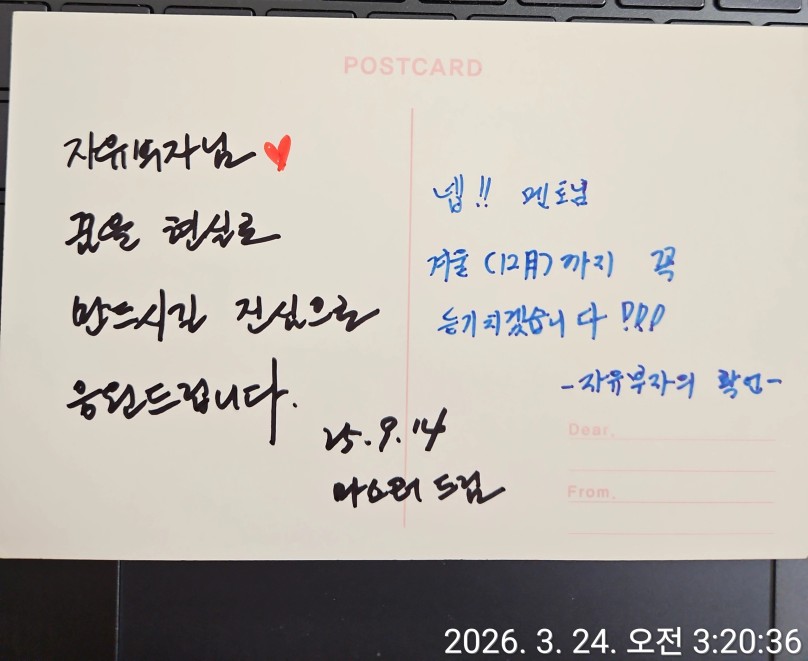 POSTCARD
자유부자님
꿈을 현실로
만드시길 진심으로
응원드립니다.
25.9.14
마스터 드림
넵!! 멘토님
겨울 (12月)까지 꼭
능가치겠습니다!!!
-자유부자의 확언-
Dear,
From,
2026. 3. 24. 오전 3:20:36